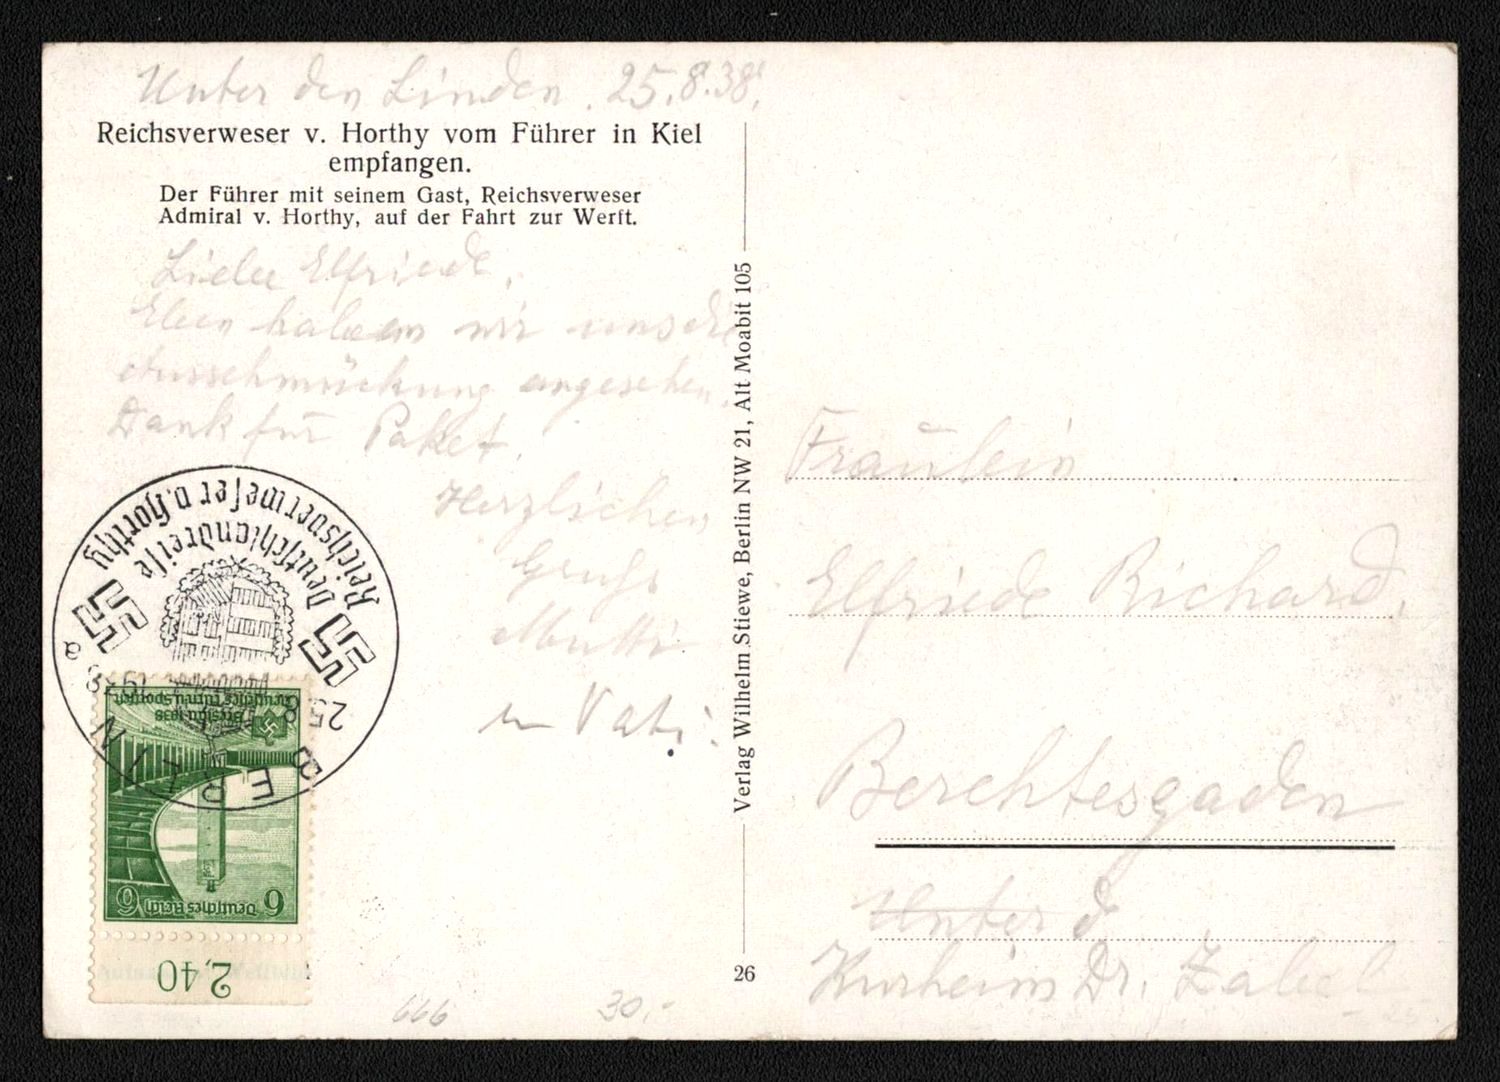 Unter den Linden. 25.8.38.
Reichsverweser v. Horthy vom Führer in Kiel
empfangen.
Der Führer mit seinem Gast, Reichsverweser
Admiral v. Horthy, auf der Fahrt zur Werft.
Liebe Elfriede,
Eben haben wir unsere
Ausschmückung angesehen.
Dank für Paket.
Herzlichen
Gruß
Mutti
u Vati.
Reichsverweser v. Horthy
Deutschlandreise
25. 8. 1938
a
BERLIN
Deutsches Turn u. Sportfest
Breslau 1938
6 Deutsches Reich 6
2,40
666
30,-
Verlag Wilhelm Stiewe, Berlin NW 21, Alt Moabit 105
26
Fräulein
Elfriede Richard.
Berchtesgaden
Unter d
Kurheim Dr. Zabel